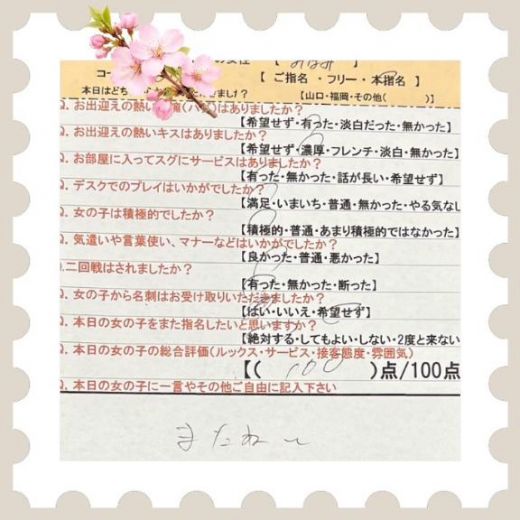 【 ご指名 ・ フリー ・ 本指名 】
【山口・福岡・その他( )】
お出迎えの熱い
はありましたか？
【希望せず・有った・淡白だった・無かった】
Q. お出迎えの熱いキスはありましたか？
【希望せず・濃厚・フレンチ・淡白・無かった】
Q. お部屋に入ってスグにサービスはありましたか？
【有った・無かった・話が長い・希望せず】
Q. デスクでのプレイはいかがでしたか？
【満足・いまいち・普通・無かった・やる気なし
Q. 女の子は積極的でしたか？
【積極的・普通・あまり積極的ではなかった】
Q. 気遣いや言葉使い、マナーなどはいかがでしたか？
【良かった・普通・悪かった】
Q.二回戦はされましたか？
【有った・無かった・断った】
Q. 女の子から名刺はお受け取りいただきましたか？
【はい・いいえ・希望せず】
Q. 本日の女の子をまた指名したいと思いますか？
【絶対する・してもよい・しない・2度と来ない
Q. 本日の女の子の総合評価(ルックス・サービス・接客態度・雰囲気)
【( 100 )点/100点
Q. 本日の女の子に一言やその他ご自由に記入下さい
またね〜